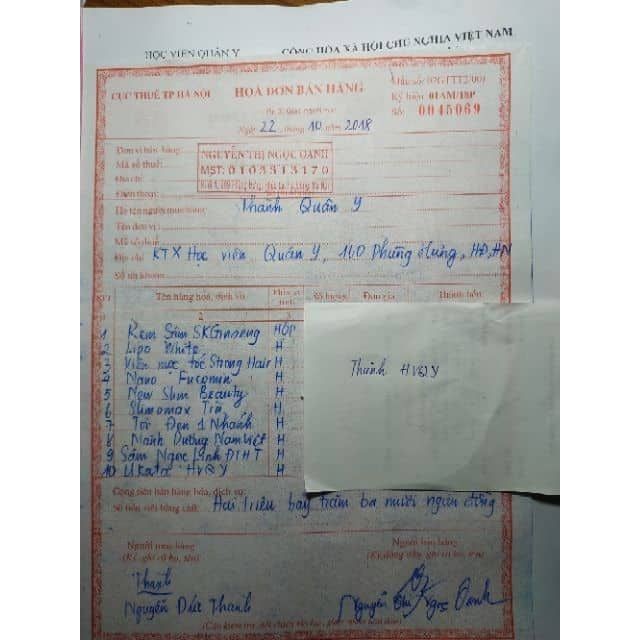 HỌC VIỆN QUÂN Y
CỘNG HÒA XÃ HỘI CHỦ NGHĨA VIỆT NAM
CỤC THUẾ TP HÀ NỘI
HOÁ ĐƠN BÁN HÀNG
Mẫu số: 02GTTT2/001
Ký hiệu: 01AM/18P
Số: 0045069
Ngày 22 tháng 10 năm 2018
Đơn vị bán hàng:
NGUYỄN THỊ NGỌC OANH
Mã số thuế:
MST: 0103313170
Địa chỉ:
Điện thoại:
Họ tên người mua hàng: Khánh Quân Y
Tên đơn vị:
Mã số thuế:
Địa chỉ: KTX Học viện Quân Y, 160 Phùng Hưng, HĐ, HN
Số tài khoản:
STT Tên hàng hoá, dịch vụ Đơn vị tính Số lượng Đơn giá Thành tiền
2 3
1 Kem Sâm SKGinseng HỘP
2 Lipo White H
3 Viên mọc tóc Strong Hair H
4 Nano Fucomin H
5 New Slim Beauty H
6 Slimomax Tin H
7 Tỏi Đen 1 Nhánh H
8 Mãnh Dương Nam Việt H
9 Sâm Ngọc Linh ĐTHT H
10 Ukata HVQY H
Thành HVQY
Cộng tiền bán hàng hóa, dịch vụ:
Số tiền viết bằng chữ: Hai triệu bảy trăm ba mươi ngàn đồng
Người mua hàng
(Ký, ghi rõ họ, tên)
Người bán hàng
(Ký, đóng dấu, ghi rõ họ, tên)
Thanh
Nguyễn Đức Thanh
Nguyễn Thị Ngọc Oanh